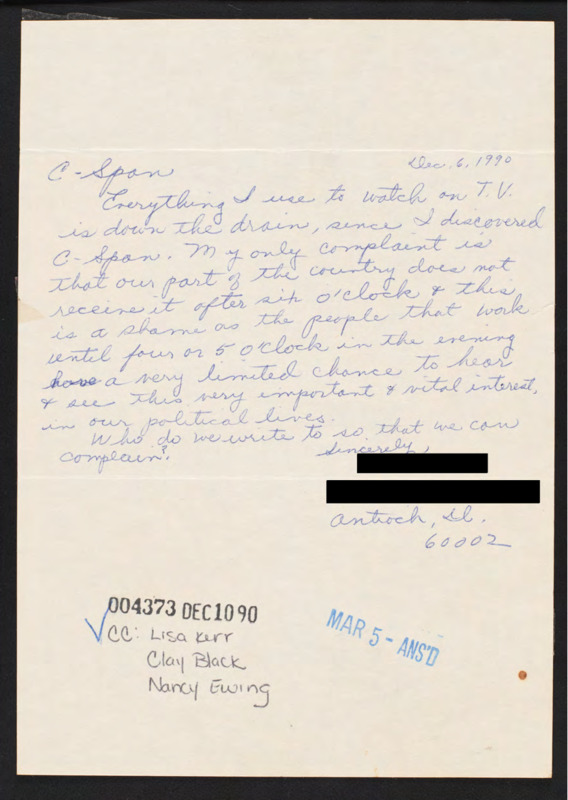 Dec. 6, 1990
C-Span
Everything I use to watch on T.V.
is down the drain, since I discovered
C-Span. My only complaint is
that our part of the country does not
receive it after six o'clock & this
is a shame as the people that work
until four or 5 o'clock in the evening
have a very limited chance to hear
& see this very important & vital interest,
in our political lives.
Who do we write to so that we can
complain?
Sincerely,
Antioch, Il.
60002
004373 DEC1090
CC: Lisa Kerr
Clay Black
Nancy Ewing
MAR 5 - ANS'D